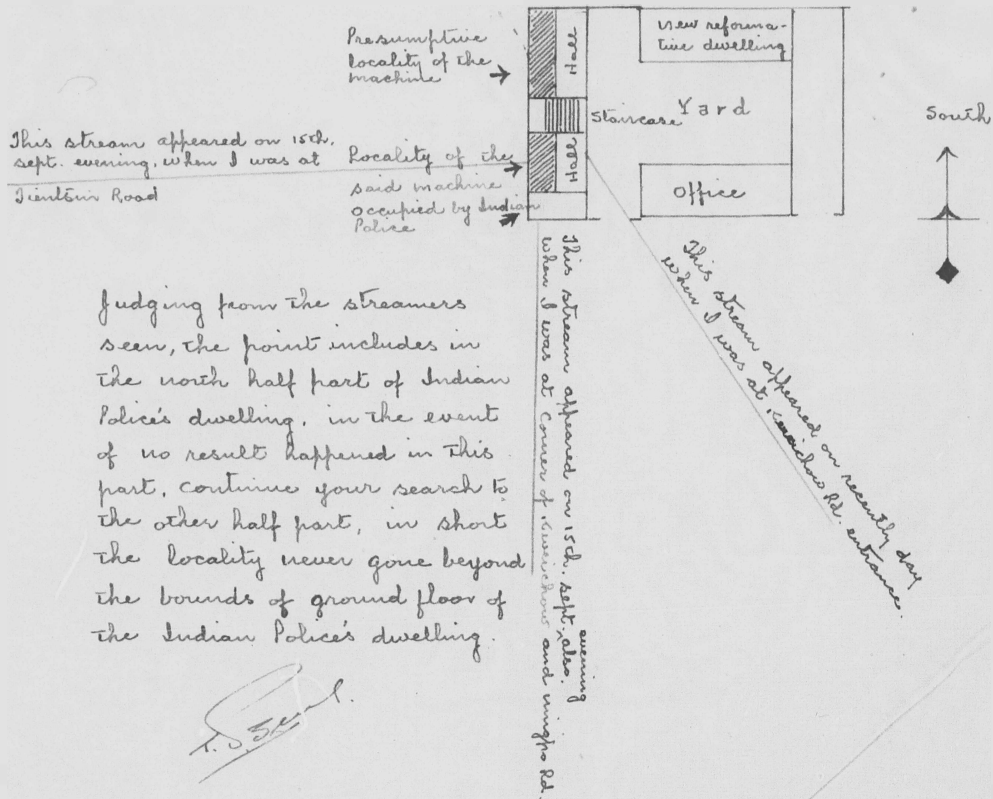 Presumptive
locality of the
machine
Room
new reforma-
tive dwelling
Staircase
Yard
South
This stream appeared on 15th.
sept. evening, when I was at
Tientsin Road
Locality of the
said machine
occupied by Indian
Police
Room
Office
Judging from the streamers
seen, the point includes in
the north half part of Indian
Police's dwelling, in the event
of no result happened in this
part, continue your search to
the other half part, in short
the locality never gone beyond
the bounds of ground floor of
the Indian Police's dwelling.
This stream appeared on 15th. sept. evening also.
when I was at Corner of Kweichow and ningpo Rd.
This stream appeared on recently day
when I was at Kweichow Rd. entrance.